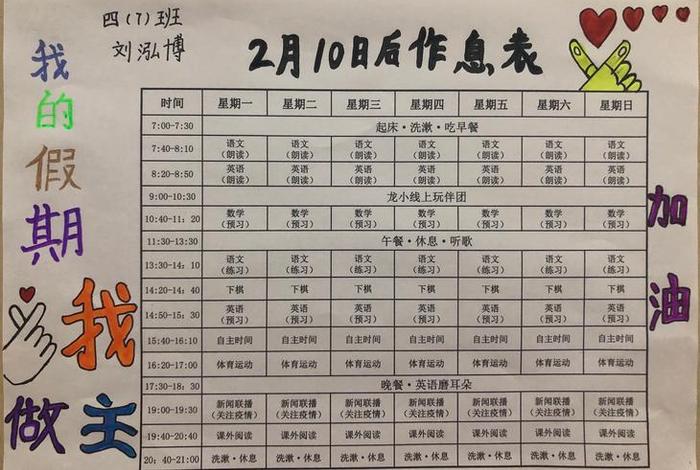 四(7)班
刘泓博
2月10日后作息表
我的假期
我做主
加油
时间 星期一 星期二 星期三 星期四 星期五 星期六 星期日
7:00-7:30 起床·洗漱·吃早餐
7:40-8:10 语文（朗读） 语文（朗读） 语文（朗读） 语文（朗读） 语文（朗读） 语文（朗读） 语文（朗读）
8:20-8:50 英语（朗读） 英语（朗读） 英语（朗读） 英语（朗读） 英语（朗读） 英语（朗读） 英语（朗读）
9:00-10:30 龙小线上玩伴团
10:40-11:20 数学（预习） 数学（预习） 数学（预习） 数学（预习） 数学（预习） 数学（预习） 数学（预习）
11:30-13:30 午餐·休息·听歌
13:30-14:10 语文（练习） 语文（练习） 语文（练习） 语文（练习） 语文（练习） 语文（练习） 语文（练习）
14:20-14:40 下棋 下棋 下棋 下棋 下棋 下棋 下棋
14:50-15:30 英语（预习） 英语（预习） 英语（预习） 英语（预习） 英语（预习） 英语（预习） 英语（预习）
15:40-16:10 自主时间 自主时间 自主时间 自主时间 自主时间 自主时间 自主时间
16:20-17:00 体育运动 体育运动 体育运动 体育运动 体育运动 体育运动 体育运动
17:30-18:30 晚餐·英语磨耳朵
19:00-19:30 新闻联播（关注疫情） 新闻联播（关注疫情） 新闻联播（关注疫情） 新闻联播（关注疫情） 新闻联播（关注疫情） 新闻联播（关注疫情） 新闻联播（关注疫情）
19:40-20:40 课外阅读 课外阅读 课外阅读 课外阅读 课外阅读 课外阅读 课外阅读
20:40-21:00 洗漱·休息 洗漱·休息 洗漱·休息 洗漱·休息 洗漱·休息 洗漱·休息 洗漱·休息